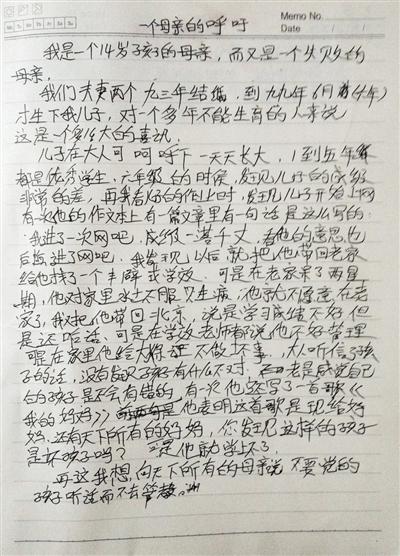 一个母亲的呼吁
Memo No.
Date / /
我是一个14岁孩子的母亲,而又是一个失败的
母亲。
我们夫妻两个九三年结婚,到九九年6月(
才生下我儿子,对一个多年不能生育的人来说
这是一个多么大的喜讯.
儿子在大人呵呵护下一天天长大,1到五年级
都是优秀学生,六年级的时候,发现儿子的成绩
非常的差,再我看他的作业时,发现儿子开始上网
有次他的作文本上有一篇文章里有一句话是这么写的:
我进了一次网吧,成绩一落千丈,看他的意思也
后悔进了网吧.我发现以后就把他带回老家
给他找了一个学校.可是在老家呆了两星
期,他对家里水土不服又生病,他就不愿意在老
家了,我又把他带回北京,说是学习成绩不好但
是还 可是在学校老师都说他不好管理
可是在家里他给大保证不做坏事,大人听信了孩
子的话,没有发现孩子有什么不对,老是感觉自己
的孩子是不会有错的,有次他还写了一首歌《
我的妈妈》 他表明这首歌是现给妈
妈.还有天下所有的妈妈,你发现这样的孩子
是坏孩子吗? 是他就学坏了.
再这我想向天下所有的母亲说不要觉的
孩子听话而不去管教。